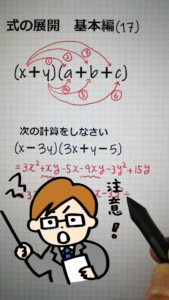 式の展開 基本編(17)
① ② ③
(x+y)(a+b+c)
④ ⑤ ⑥
次の計算をしなさい
(x-3y)(3x+y-5)
=3x²+xy-5x-9xy-3y²+15y
注意!